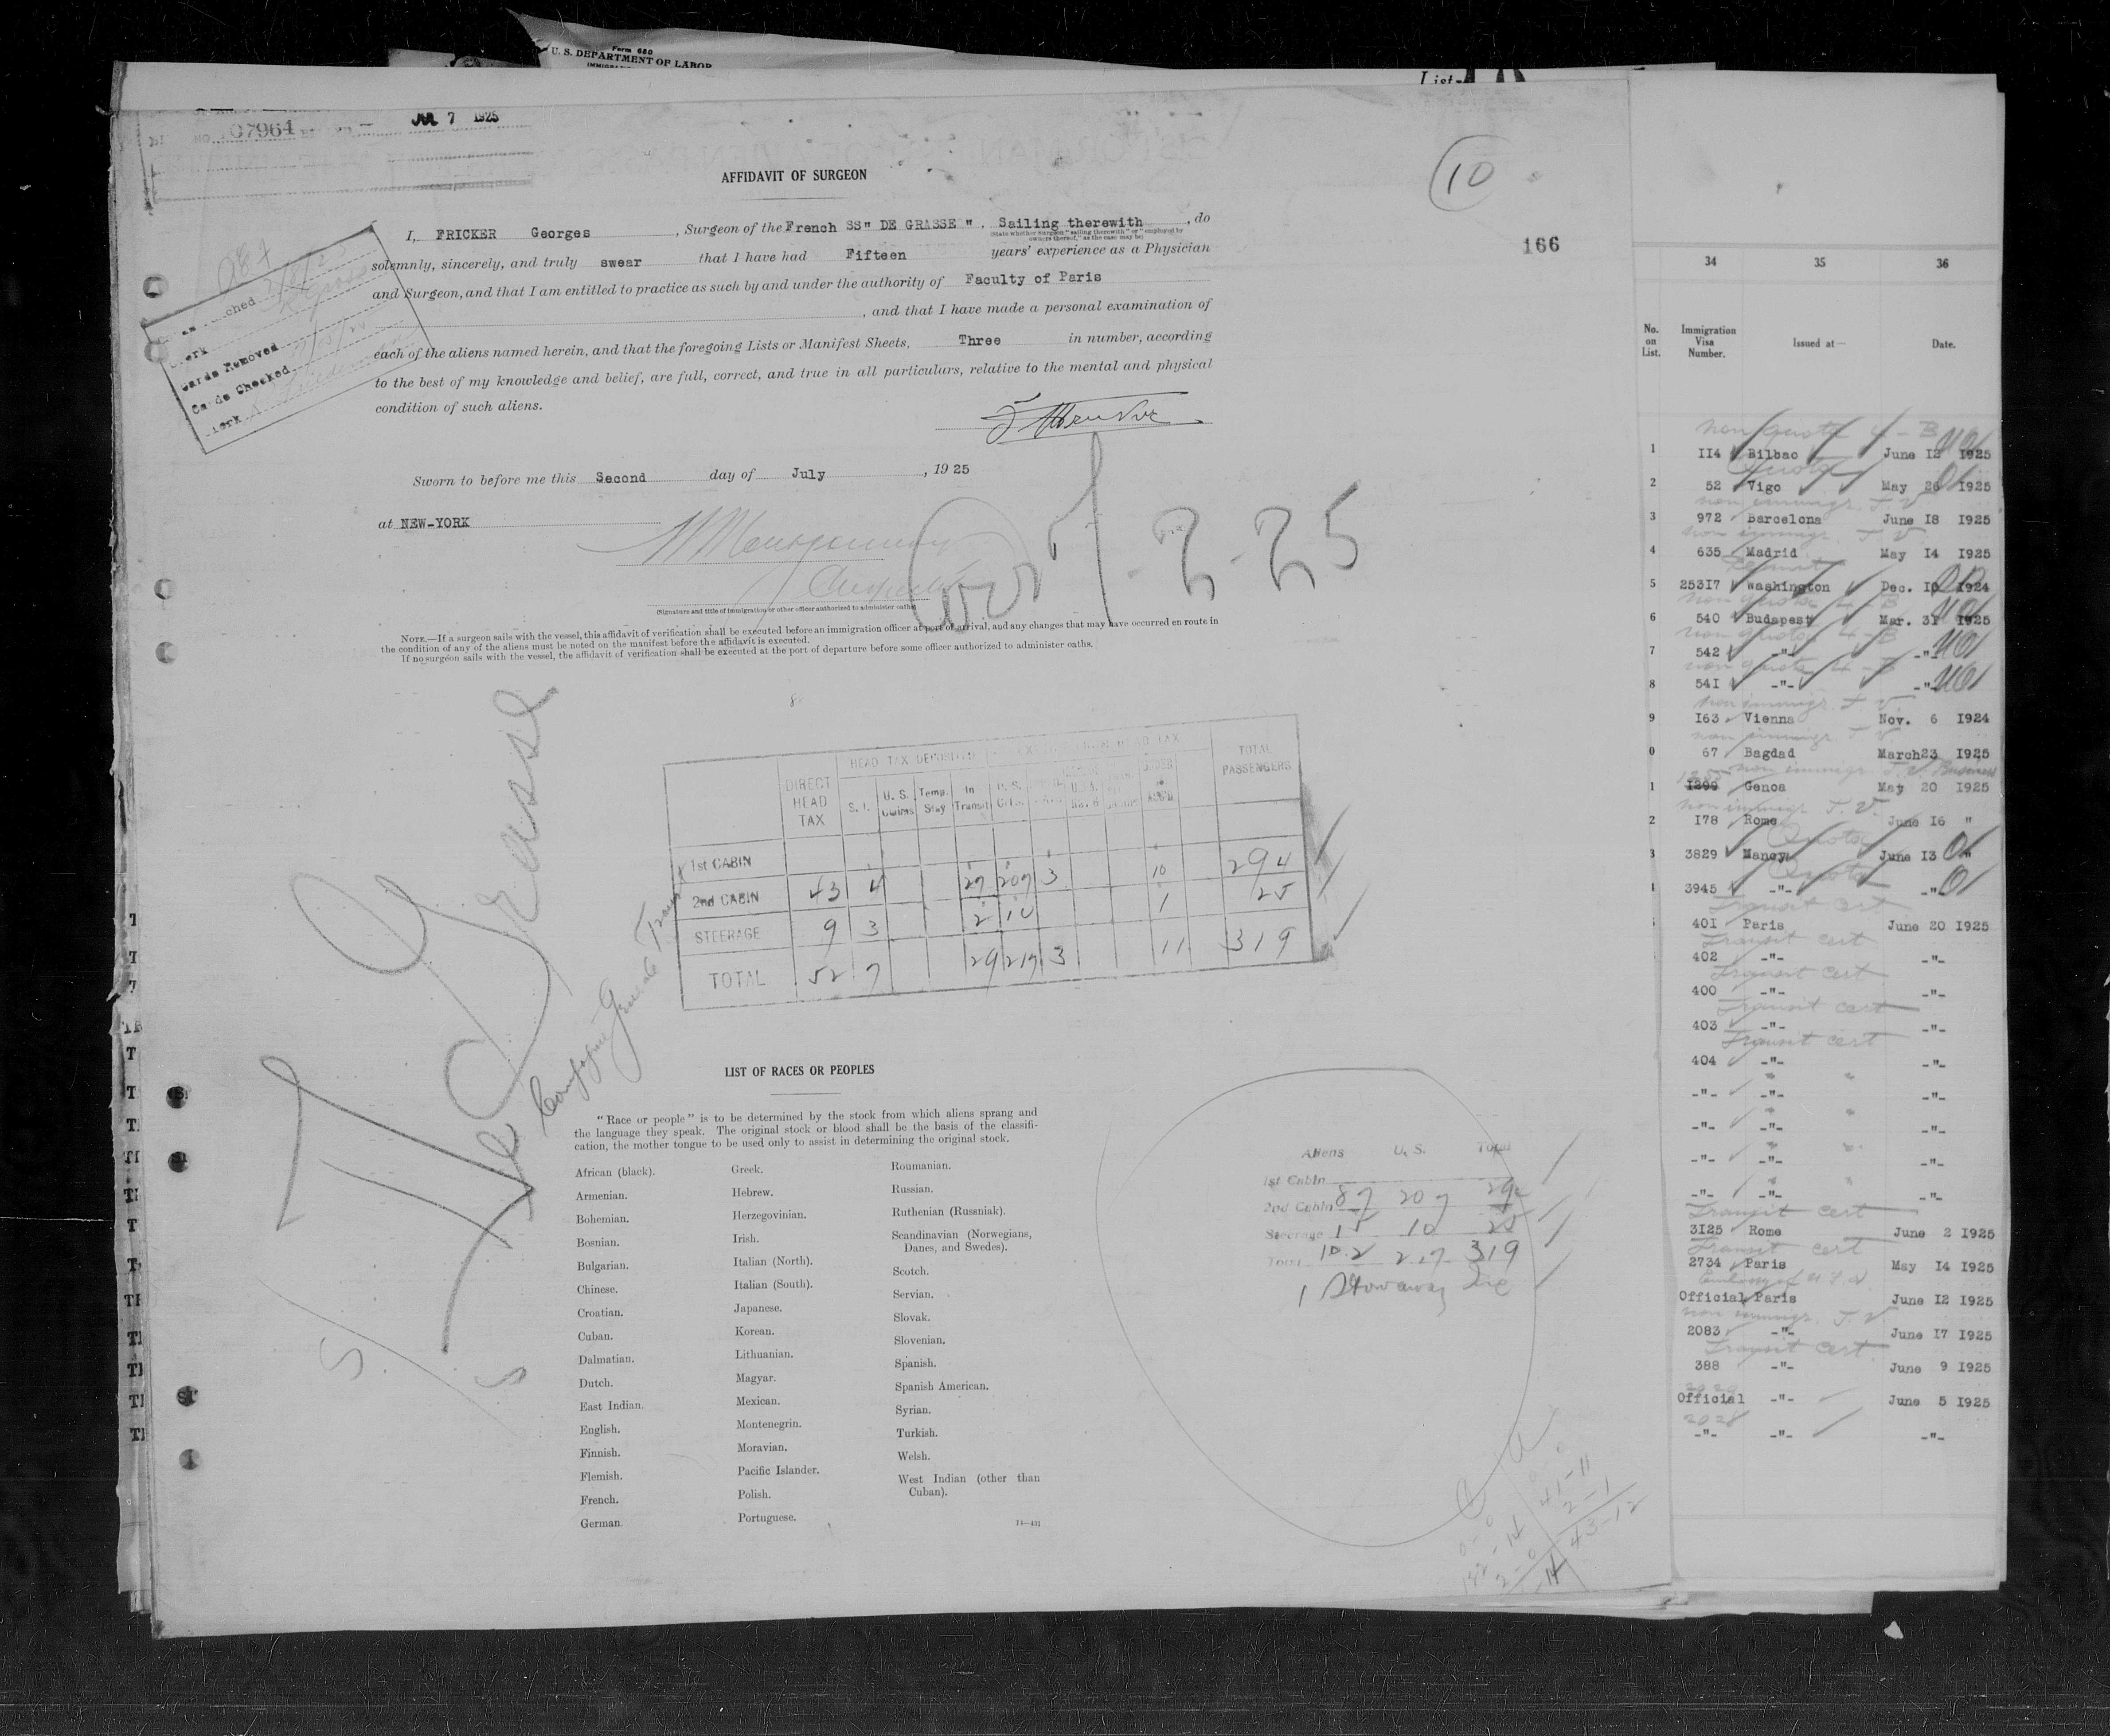 Form 680
U. S. DEPARTMENT OF LABOR
List
07964
JUL 7 1925
10
166
AFFIDAVIT OF SURGEON
I, FRICKER Georges, Surgeon of the French SS" DE GRASSE ", Sailing therewith, do
(State whether Surgeon "sailing therewith" or "employed by
owners thereof," as the case may be)
solemnly, sincerely, and truly swear that I have had Fifteen years' experience as a Physician
and Surgeon, and that I am entitled to practice as such by and under the authority of Faculty of Paris
, and that I have made a personal examination of
each of the aliens named herein, and that the foregoing Lists or Manifest Sheets, Three in number, according
to the best of my knowledge and belief, are full, correct, and true in all particulars, relative to the mental and physical
condition of such aliens.
Cards Removed
Cards Checked
Sworn to before me this Second day of July, 1925
at NEW-YORK
(Signature and title of immigration or other officer authorized to administer oaths)
NOTE.—If a surgeon sails with the vessel, this affidavit of verification shall be executed before an immigration officer at port of arrival, and any changes that may have occurred en route in
the condition of any of the aliens must be noted on the manifest before the affidavit is executed.
If no surgeon sails with the vessel, the affidavit of verification shall be executed at the port of departure before some officer authorized to administer oaths.
DIRECT HEAD TAX
HEAD TAX DEPOSITED
S. I.
U. S. Claims
Temp. Stay
In Transit
TOTAL PASSENGERS
1st CABIN
2nd CABIN 43 4 27 207 3 10 294
STEERAGE 9 3 2 10 1 25
TOTAL 52 7 29 217 3 11 319
S/S De Grasse
LIST OF RACES OR PEOPLES
"Race or people" is to be determined by the stock from which aliens sprang and
the language they speak. The original stock or blood shall be the basis of the classifi-
cation, the mother tongue to be used only to assist in determining the original stock.
African (black).
Armenian.
Bohemian.
Bosnian.
Bulgarian.
Chinese.
Croatian.
Cuban.
Dalmatian.
Dutch.
East Indian.
English.
Finnish.
Flemish.
French.
German.
Greek.
Hebrew.
Herzegovinian.
Irish.
Italian (North).
Italian (South).
Japanese.
Korean.
Lithuanian.
Magyar.
Mexican.
Montenegrin.
Moravian.
Pacific Islander.
Polish.
Portuguese.
Roumanian.
Russian.
Ruthenian (Russniak).
Scandinavian (Norwegians,
Danes, and Swedes).
Scotch.
Servian.
Slovak.
Slovenian.
Spanish.
Spanish American.
Syrian.
Turkish.
Welsh.
West Indian (other than
Cuban).
Aliens U. S. Total
1st Cabin
2nd Cabin 87 207 294
Steerage 15 10 25
Total 102 217 319
1 Stowaway
34 35 36
No. on List.
Immigration Visa Number.
Issued at—
Date.
non quota 4-B
1 114 Bilbao June 12 1925
Quota
2 52 Vigo May 26 1925
non immigr. T. V.
3 972 Barcelona June 18 1925
non immigr. T V
4 635 Madrid May 14 1925
5 25317 Washington Dec. 10 1924
non quota 4-B
6 540 Budapest Mar. 31 1925
non quota 4-B
7 542 -"- -"-
non quota 4-B
8 541 -"- -"-
non immigr. T V.
9 163 Vienna Nov. 6 1924
non immigr. T V
0 67 Bagdad March 23 1925
non immigr. T. V. Business
1 1299 Genoa May 20 1925
non immigr T. V.
2 178 Rome June 16 "
Quota
3 3829 Nancy June 13 "
Quota
3945 -"- -"-
Transit cert
401 Paris June 20 1925
Transit cert
402 -"- -"-
Transit cert
400 -"- -"-
Transit cert
403 -"- -"-
Transit cert
404 -"- -"-
" "
-"- -"- -"-
" "
-"- -"- -"-
" "
-"- -"- -"-
" "
-"- -"- -"-
Transit cert
3125 Rome June 2 1925
Transit cert
2734 Paris May 14 1925
Embassy of U. S. A
Official Paris June 12 1925
non immigr. T. V.
2083 -"- June 17 1925
Transit cert
388 -"- June 9 1925
Official -"- June 5 1925
2028
-"- -"- -"-